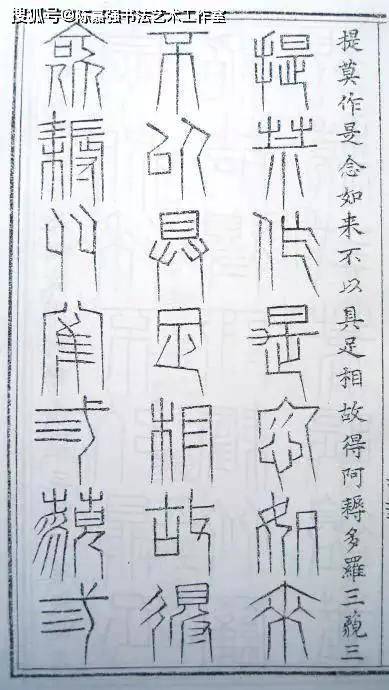 搜狐号@陈嘉强书法艺术工作室
提莫作是念如来不以具足相故得阿耨多羅三藐三
提莫作是念如来
不以具足相故得
阿耨多羅三藐三